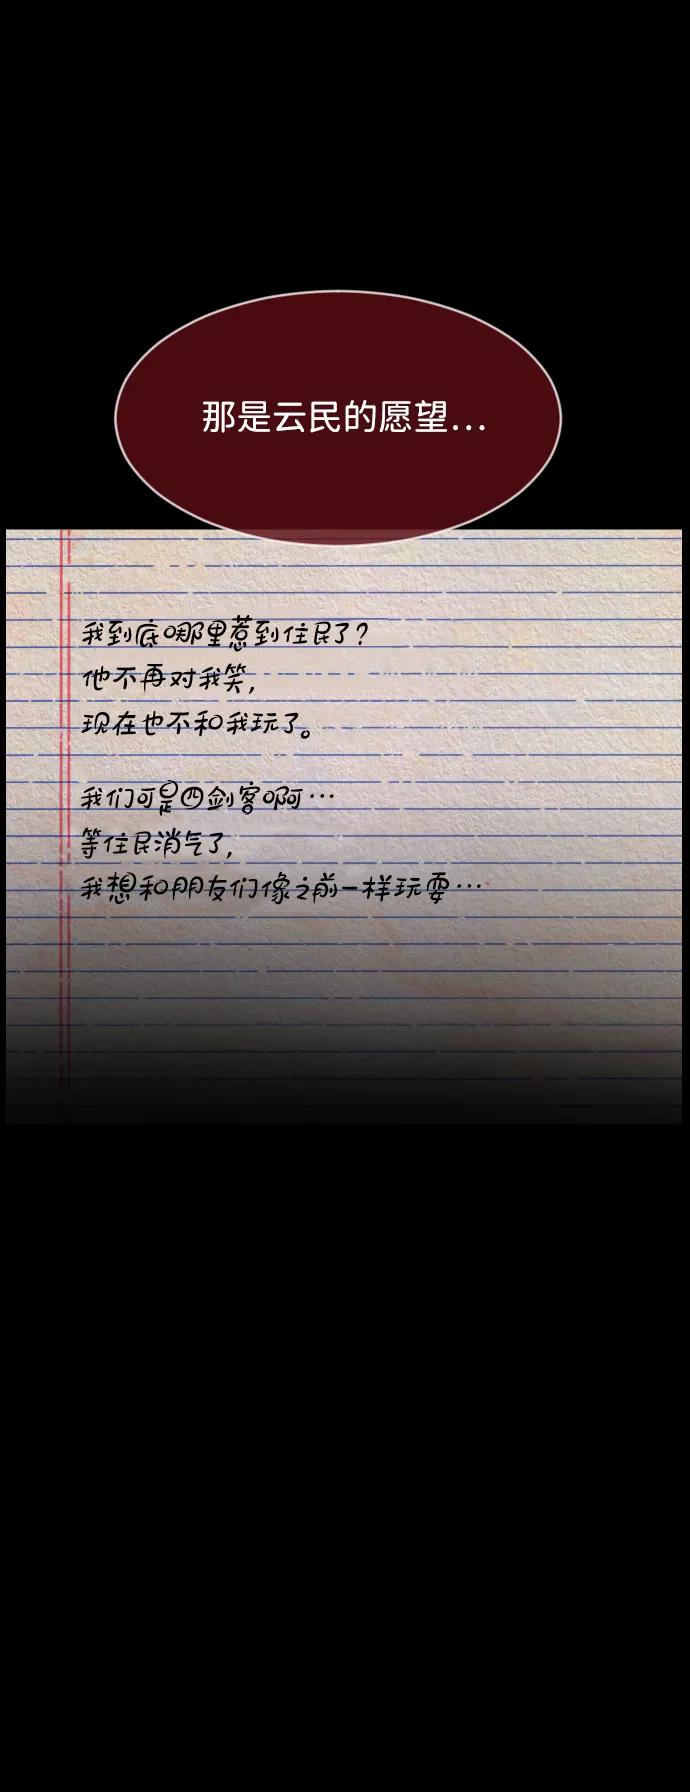 那是云民的愿望...
我到底哪里惹到住民了?
他不再对我笑,
现在也不和我玩了。
我们可是四剑客啊…
等住民消气了,
我想和朋友们像之前一样玩耍…